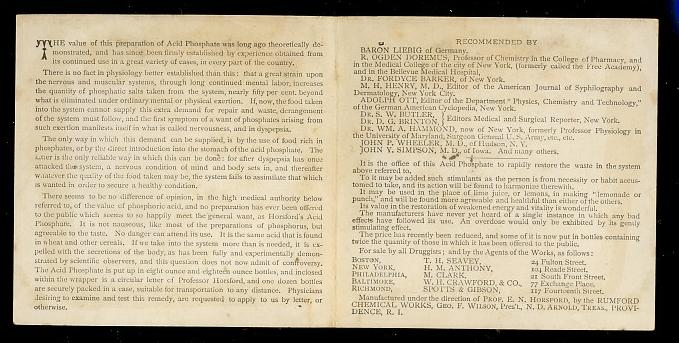 THE value of this preparation of Acid Phosphate was long ago theoretically de-
monstrated, and has since been firmly established by experience obtained from
its continued use in a great variety of cases, in every part of the country.
There is no fact in physiology better established than this: that a great strain upon
the nervous and muscular systems, through long continued mental labor, increases
the quantity of phosphatic salts taken from the system, nearly fifty per cent. beyond
what is eliminated under ordinary mental or physical exertion. If, now, the food taken
into the system cannot supply this extra demand for repair and waste, derangement
of the system must follow, and the first symptom of a want of phosphates arising from
such exertion manifests itself in what is called nervousness, and in dyspepsia.
The only way in which this demand can be supplied, is by the use of food rich in
phosphates, or by the direct introduction into the stomach of the acid phosphate. The
latter is the only reliable way in which this can be done: for after dyspepsia has once
attacked the system, a nervous condition of mind and body sets in, and thereafter
whatever the quality of the food taken may be, the system fails to assimilate that which
is wanted in order to secure a healthy condition.
There seems to be no difference of opinion, in the high medical authority below
referred to, of the value of phosphoric acid, and no preparation has ever been offered
to the public which seems to so happily meet the general want, as Horsford's Acid
Phosphate. It is not nauseous, like most of the preparations of phosphorus, but
agreeable to the taste. No danger can attend its use. It is the same acid that is found
in wheat and other cereals. If we take into the system more than is needed, it is ex-
pelled with the secretions of the body, as has been fully and experimentally demon-
strated by scientific observers, and this question does not now admit of controversy.
The Acid Phosphate is put up in eight ounce and eighteen ounce bottles, and inclosed
within the wrapper is a circular letter of Professor Horsford, and one dozen bottles
are securely packed in a case, suitable for transportation to any distance. Physicians
desiring to examine and test this remedy, are requested to apply to us by letter, or
otherwise.
RECOMMENDED BY
BARON LIEBIG of Germany.
R. OGDEN DOREMUS, Professor of Chemistry in the College of Pharmacy, and
in the Medical College of the city of New York, (formerly called the Free Academy),
and in the Bellevue Medical Hospital,
DR. FORDYCE BARKER, of New York.
M. H. HENRY, M. D., Editor of the American Journal of Syphilography and
Dermatology, New York City.
ADOLPH OTT, Editor of the Department "Physics, Chemistry and Technology,"
of the German American Cyclopedia, New York.
DR. S. W. BUTLER, } Editors Medical and Surgical Reporter, New York.
DR. D. G. BRINTON,
DR. WM. A. HAMMOND, now of New York, formerly Professor Physiology in
the University of Maryland, Surgeon General U. S. Army, etc., etc.
JOHN P. WHEELER, M. D., of Hudson, N. Y.
JOHN Y. SIMPSON, M. D., of Iowa. And many others.
It is the office of this Acid Phosphate to rapidly restore the waste in the system
above referred to.
To it may be added such stimulants as the person is from necessity or habit accus-
tomed to take, and its action will be found to harmonize therewith.
It may be used in the place of lime juice, or lemons, in making "lemonade or
punch," and will be found more agreeable and healthful than either of the others.
Its value in the restoration of weakened energy and vitality is wonderful.
The manufacturers have never yet heard of a single instance in which any bad
effects have followed its use. An overdose would only be exhibited by its gently
stimulating effect.
The price has recently been reduced, and some of it is now put in bottles containing
twice the quantity of those in which it has been offered to the public.
For sale by all Druggists; and by the Agents of the Works, as follows:
BOSTON, T. H. SEAVEY, 24 Fulton Street.
NEW YORK, H. M. ANTHONY, 104 Reade Street.
PHILADELPHIA, M. CLARK, 21 South Front Street.
BALTIMORE, W. H. CRAWFORD, & CO., 77 Exchange Place.
RICHMOND, SPOTTS & GIBSON, 117 Fourteenth Street.
Manufactured under the direction of PROF. E. N. HORSFORD, by the RUMFORD
CHEMICAL WORKS, GEO. F. WILSON, Pres't., N. D. ARNOLD, TREAS., PROVI-
DENCE, R. I.